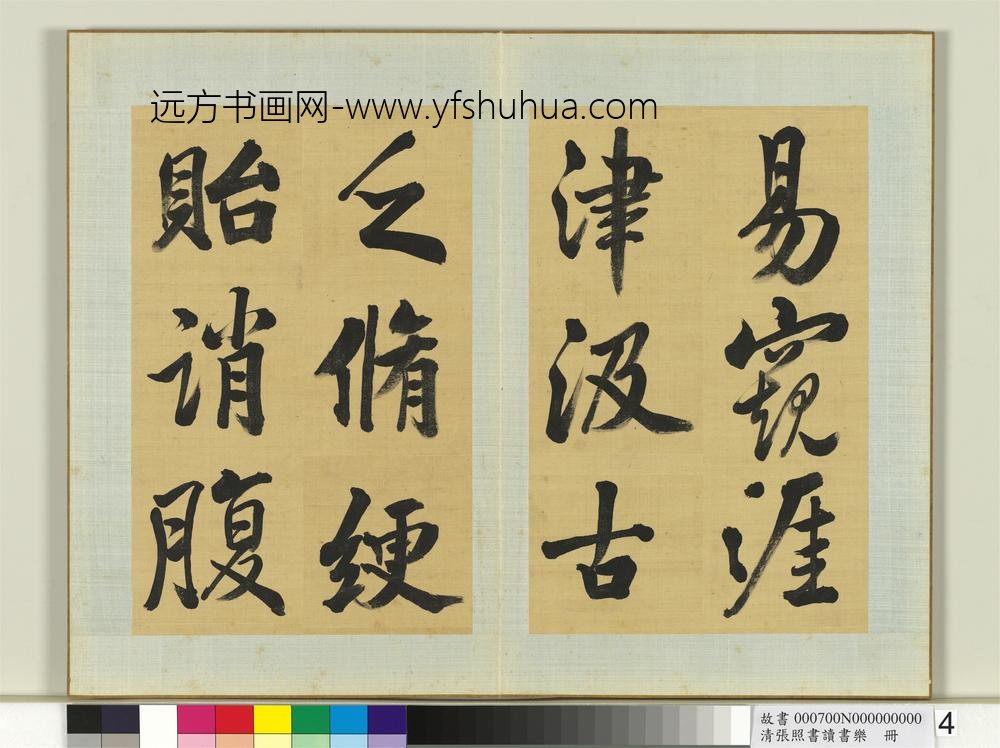 远方书画网-www.yfshuhua.com
易窺涯
津汲古
乏脩綆
貽誚腹
故書 000700N000000000
清張照書讀書樂 冊
4